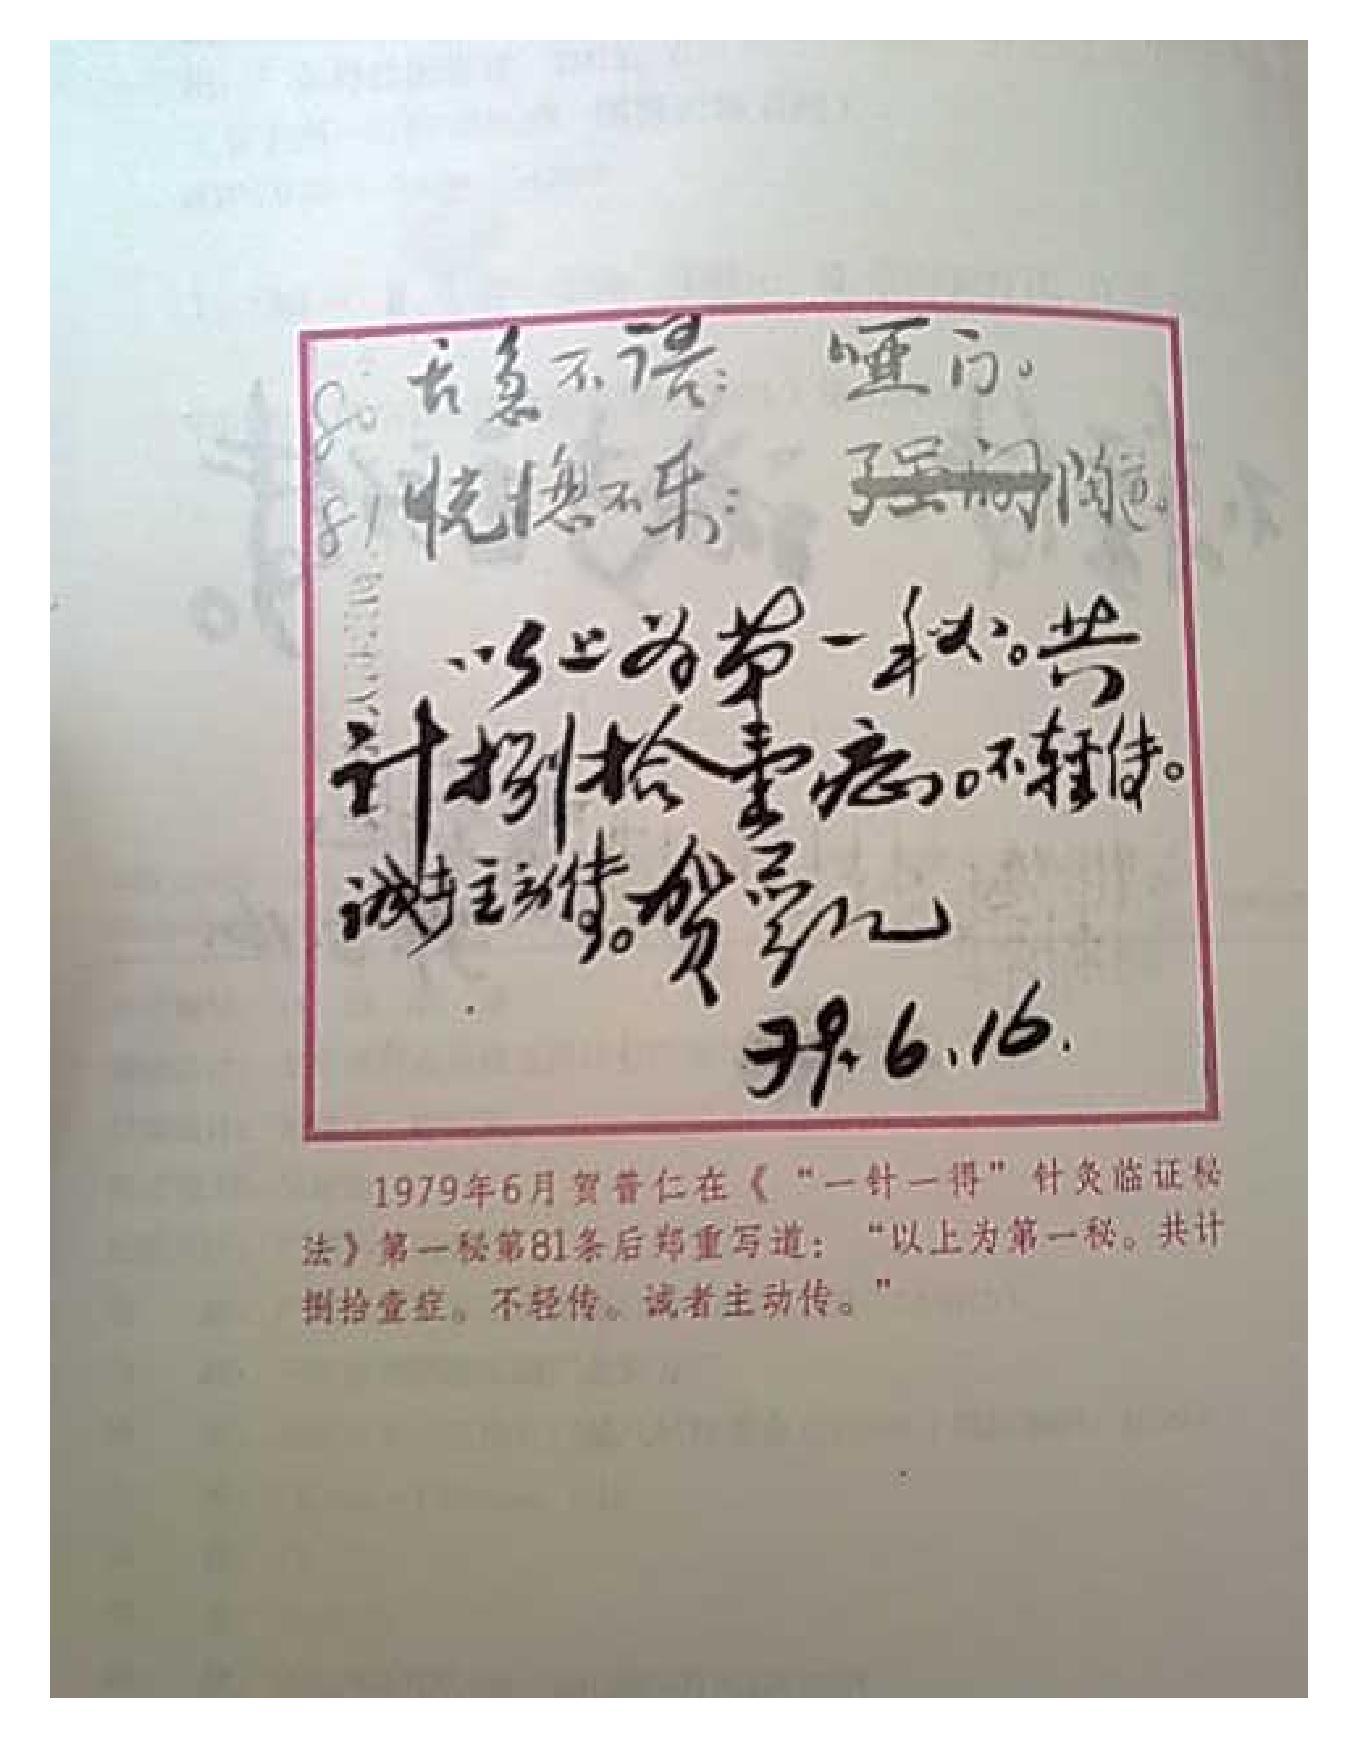 80. 舌急不语： 哑门。
81 恍惚不乐： 强间陶道。
以上为第一秘。共
计捌拾壹症。不轻传。
诚者主动传。贺普仁
79.6.16.
1979年6月贺普仁在《“一针一得”针灸临证秘
法》第一秘第81条后郑重写道：“以上为第一秘。共计
捌拾壹症。不轻传。诚者主动传。”